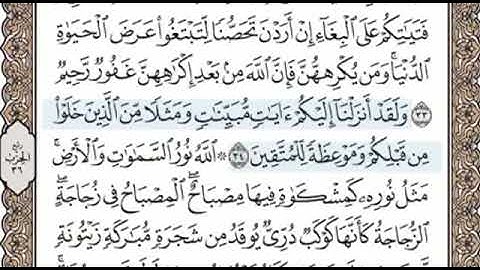 فَتَيَٰتِكُمْ عَلَى ٱلْبِغَآءِ إِنْ أَرَدْنَ تَحَصُّنًا لِّتَبْتَغُوا۟ عَرَضَ ٱلْحَيَوٰةِ
ٱلدُّنْيَا ۚ وَمَن يُكْرِههُّنَّ فَإِنَّ ٱللَّهَ مِنۢ بَعْدِ إِكْرَٰهِهِنَّ غَفُورٌ رَّحِيمٌ
٣٣ وَلَقَدْ أَنزَلْنَآ إِلَيْكُمْ ءَايَٰتٍ مُّبَيِّنَٰتٍ وَمَثَلًا مِّنَ ٱلَّذِينَ خَلَوْا۟
مِن قَبْلِكُمْ وَمَوْعِظَةً لِّلْمُتَّقِينَ ٣٤ ۞ ٱللَّهُ نُورُ ٱلسَّمَٰوَٰتِ وَٱلْأَرْضِ ۚ
مَثَلُ نُورِهِۦ كَمِشْكَوٰةٍ فِيهَا مِصْبَاحٌ ۖ ٱلْمِصْبَاحُ فِى زُجَاجَةٍ ۖ
ٱلزُّجَاجَةُ كَأَنَّهَا كَوْكَبٌ دُرِّىٌّ يُوقَدُ مِن شَجَرَةٍ مُّبَٰرَكَةٍ زَيْتُونَةٍ
ربع
الحزب
٣٦